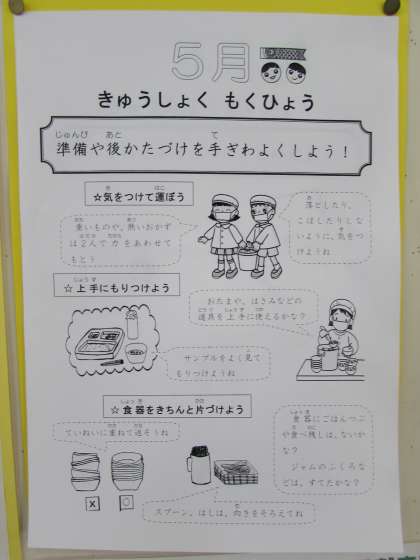 5月
きゅうしょく もくひょう
準備や後かたづけを手ぎわよくしよう！
☆気をつけて運ぼう
重いものや、熱いおかず
は2人で力をあわせて
もとう
落としたり、
こぼしたりしな
いように、気をつ
けようね
☆上手にもりつけよう
おたまや、はさみなどの
道具を上手に使えるかな？
サンプルをよく見て
もりつけようね
☆食器をきちんと片づけよう
ていねいに重ねて返そうね
x
○
食器にごはんつぶ
や食べ残しは、ないか
な？
ジャムのふくろな
どは、すてたかな？
スプーン、はしは、向きをそろえてね